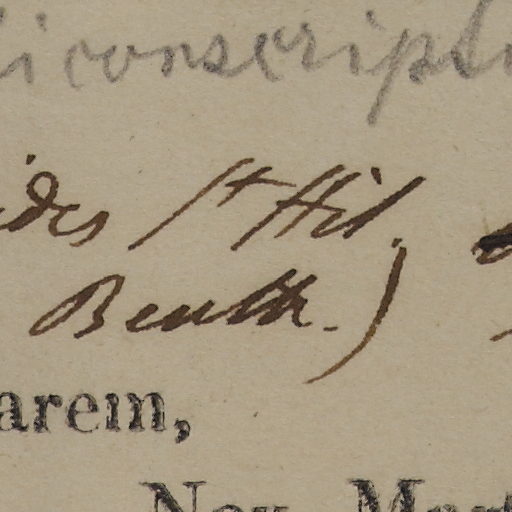 iconscript
ides St Hil.
Benth.)
arem,
Nov. Mart